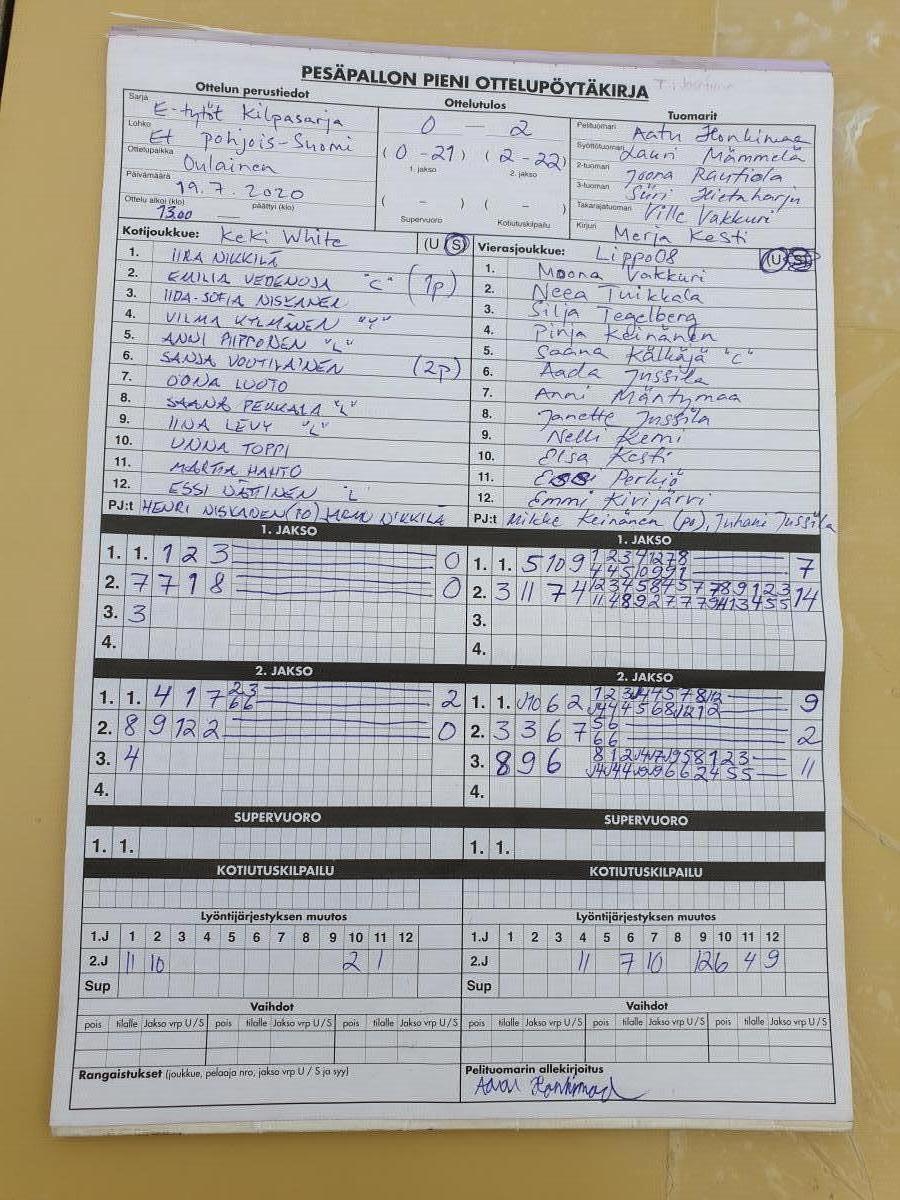 PESÄPALLON PIENI OTTELUPÖYTÄKIRJA
Ottelun perustiedot
Sarja E-tytöt Kilpasarja
Lohko Et pohjois-Suomi
Ottelupaikka Oulainen
Päivämäärä 19.7.2020
Ottelu alkoi (klo) 13.00 päättyi (klo)
Ottelutulos
0 - 2
(0 - 21) (2 - 22)
1. jakso 2. jakso
( - ) ( - )
Supervuoro Kotiutuskilpailu
Tuomarit
Pelituomari Aatu Honkimaa
Syöttötuomari Lauri Mämmelä
2-tuomari Joona Rautiola
3-tuomari Siiri Hietaharju
Takarajatuomari Ville Vakkuri
Kirjuri Merja Kesti
Kotijoukkue: KeKi White (U S)
1. IIRA NIKKILÄ
2. EMILIA VEDENOJA "C" (1p)
3. IIDA-SOFIA NISKANEN
4. VILMA KYLMÄNEN
5. ANNI PIPPONEN "L"
6. SANJA VOUTILAINEN (2p)
7. OONA LUOTO
8. SAANA PEKKALA "L"
9. IINA LEVY "L"
10. UNNA TOPPI
11. MARTTA HAHTO
12. ESSI NÄTTINEN "L"
PJ:t HENRI NISKANEN (PO) NIKKILÄ
Vierasjoukkue: Lippo08 U S
1. Moona Vakkuri
2. Neea Tuikkala
3. Silja Tegelberg
4. Pinja Keinänen
5. Saana Kälkäjä "C"
6. Aada Jussila
7. Anni Mäntymaa
8. Janette Jussila
9. Nelli Kemi
10. Elsa Kesti
11. Essi Perkiö
12. Emmi Kivijärvi
PJ:t Mikke Keinänen (po), Juhani Jussila
1. JAKSO
1. 1. 1 2 3 0
2. 7 7 1 8 0
3. 3
4.
1. JAKSO
1. 1. 5 10 9 7
2. 3 11 7 4 14
3.
4.
2. JAKSO
1. 1. 4 1 7 2 3 2
6 6
2. 8 9 12 2 0
3. 4
4.
2. JAKSO
1. 1. J10 6 2 9
2. 3 3 6 7 5 6 2
6 6
3. 8 9 6 11
4.
SUPERVUORO
1. 1.
SUPERVUORO
1. 1.
KOTIUTUSKILPAILU
KOTIUTUSKILPAILU
Lyöntijärjestyksen muutos
1.J 1 2 3 4 5 6 7 8 9 10 11 12
2.J 11 10 2 1
Sup
Lyöntijärjestyksen muutos
1.J 1 2 3 4 5 6 7 8 9 10 11 12
2.J 11 7 10 12 6 4 9
Sup
Vaihdot
pois tilalle Jakso vrp U / S pois tilalle Jakso vrp U / S pois tilalle Jakso vrp U / S
Vaihdot
pois tilalle Jakso vrp U / S pois tilalle Jakso vrp U / S pois tilalle Jakso vrp U / S
Rangaistukset (joukkue, pelaaja nro, jakso vrp U / S ja syy)
Pelituomarin allekirjoitus
Aatu Honkimaa